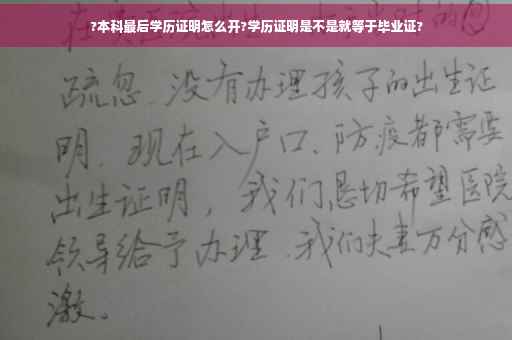 ?本科最后学历证明怎么开?学历证明是不是就等于毕业证?
疏忽、没有办理孩子的出生证
明、现在入户口、防疫都需要
出生证明，我们恳切希望医院
领导给予办理、我们夫妻万分感
激。